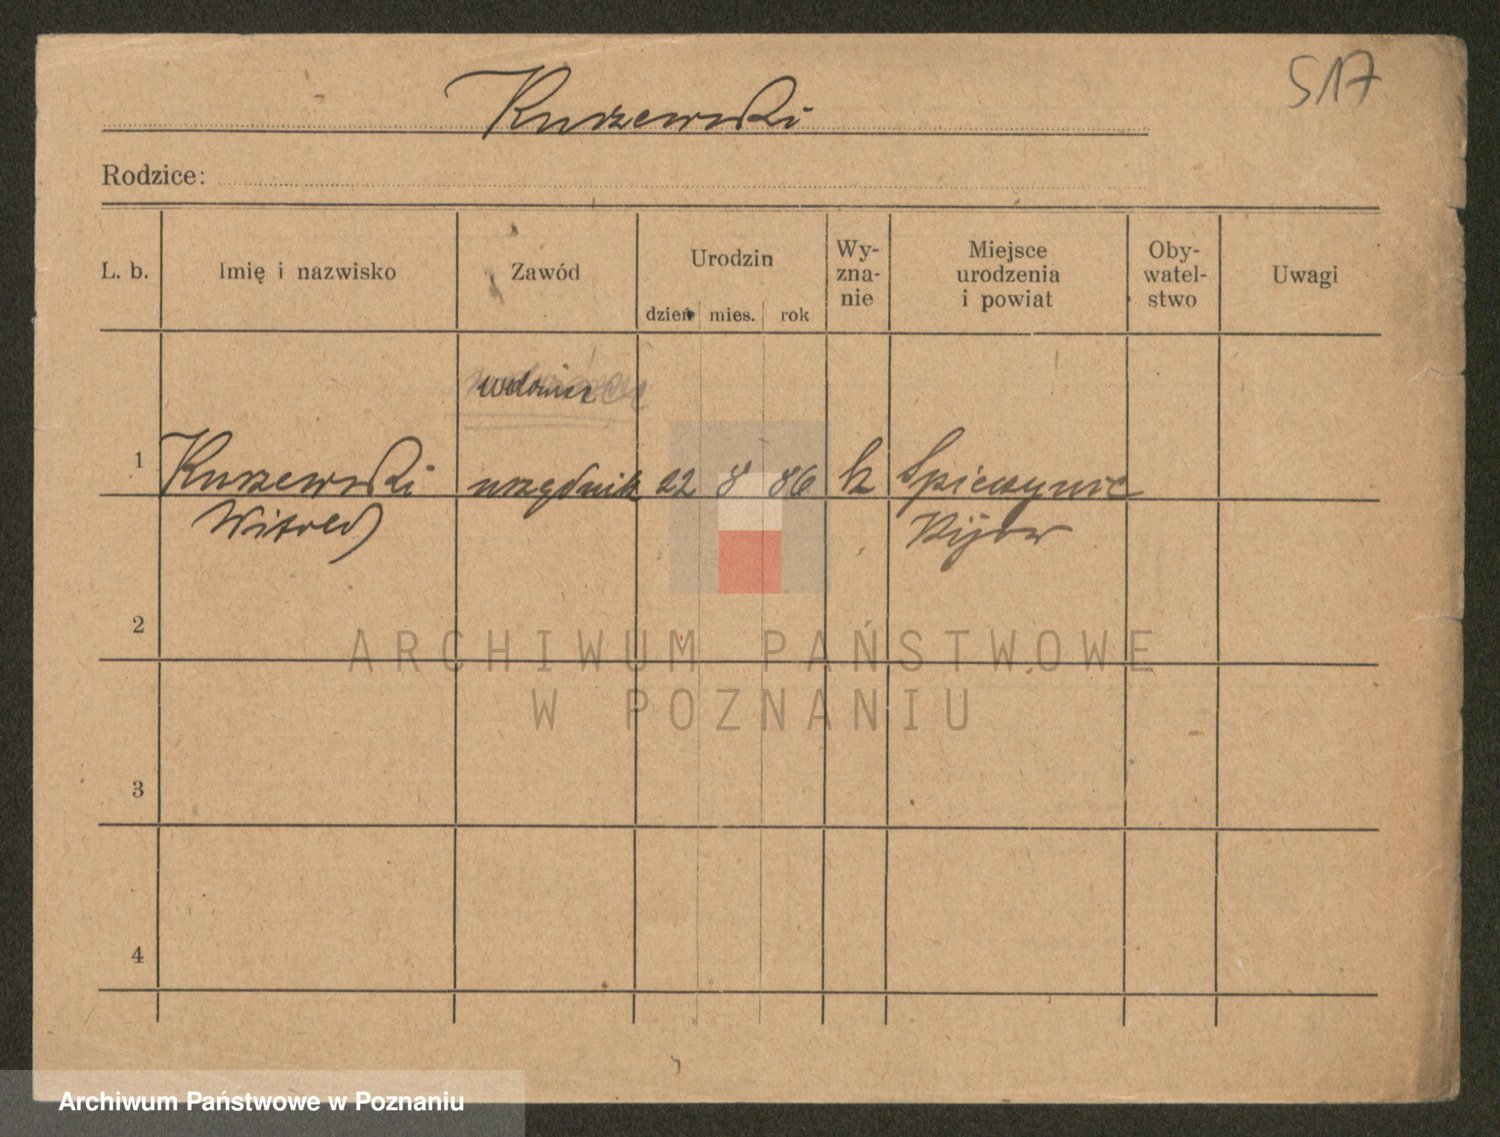 517
Kurzewski
Rodzice:
L. b.
Imię i nazwisko
Zawód
Urodzin
dzień mies. rok
Wy-
zna-
nie
Miejsce
urodzenia
i powiat
Oby-
watel-
stwo
Uwagi
1
Kurzewski
Witold
urzędnik
22 8 86
k
Spiczynie
Kijów
2
3
4
ARCHIWUM PAŃSTWOWE
W POZNANIU
Archiwum Państwowe w Poznaniu